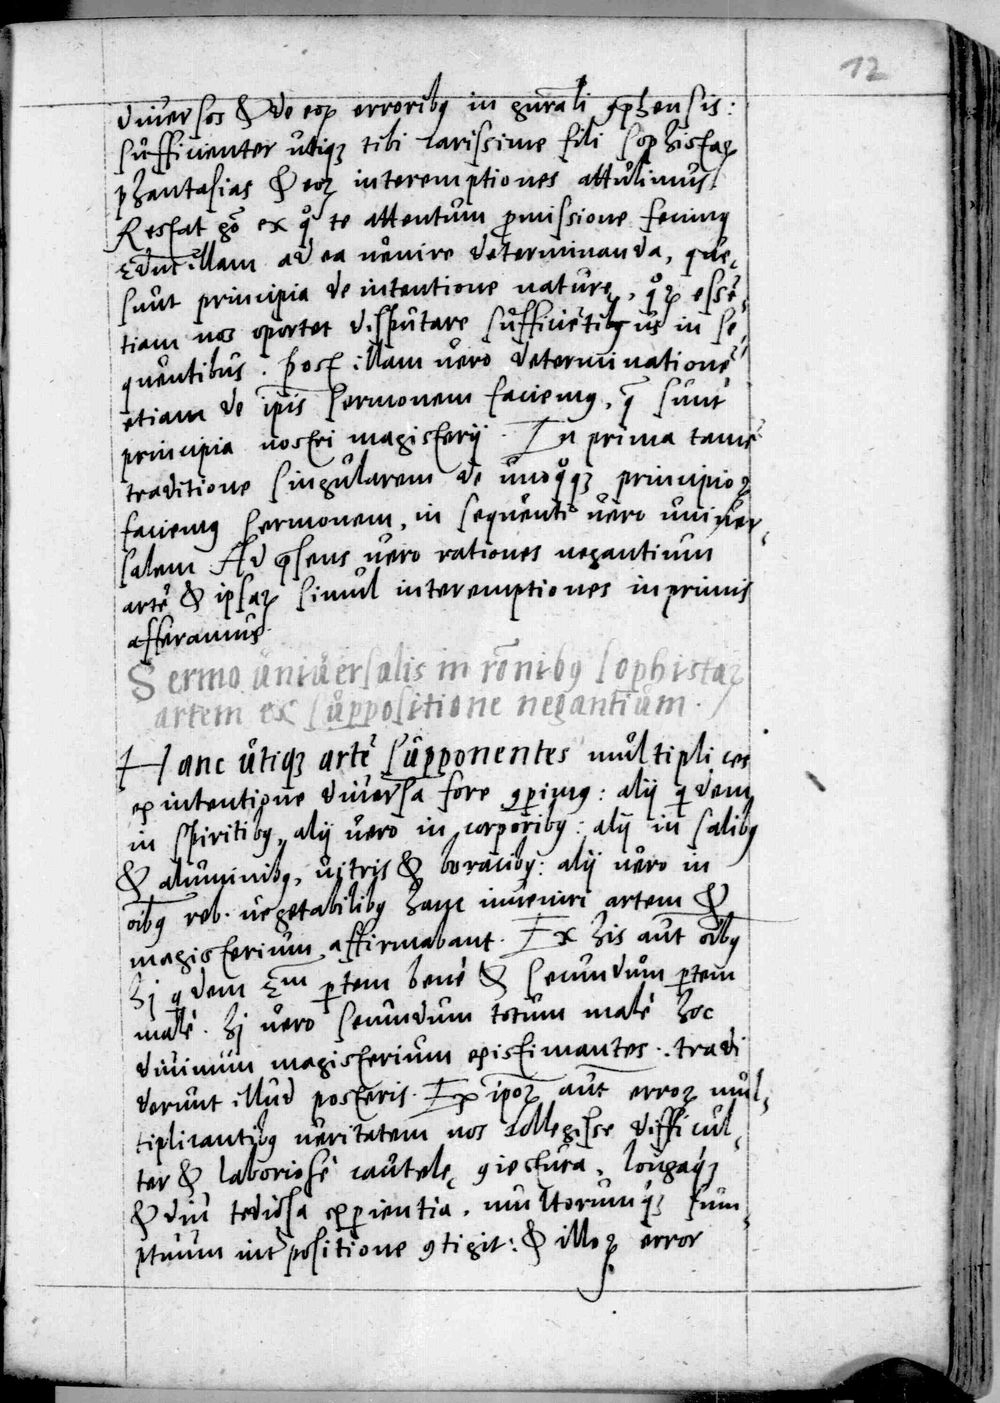 12
diuersos & de eoꝝ erroribꝯ in gn̄rali ꝯphensis:
sufficienter utiqꝫ tibi carissime fili sophistaꝝ
phantasias & eoꝝ interemptiones attulimus
Restat g̃o ex quo te attentum ꝓmissione fecimꝯ
illam ad ea uenire determinanda, que
sunt principia de intentione naturę, quoꝝ essē-
tiam nos oportet disputare sufficiētibꝯ us in se-
quentibus. Post illam uero determinationē
etiam de ip̄is sermonem faciemꝯ, q̃ sunt
principia nostri magisterij. In prima tamē
traditione singularem de unoquoqꝫ principioꝝ
faciemꝯ sermonem, in sequenti uero uniuer-
salem Ad p̄sens uero rationes negantium
artē & ipsaꝝ simul interemptiones in primis
afferamus.
Sermo uniuersalis in rōnibꝯ sophistaꝝ
artem ex suppositione negantium.
Hanc utiqꝫ artē supponentes multiplices
ex intentione diuersa fore ꝯperimꝯ: alij quidem
in spiritibꝯ, alij uero in corporibꝯ: alij in salibꝯ
& aluminibꝯ, uitris & boracibꝯ: alij uero in
oībꝯ reb. uegetabilibꝯ hanc inueniri artem &
magisterium affirmabant. Ex his aut oībꝯ
hi quidem ẜm ꝑtem benè & secundum ꝑtem
malè. hi uero secundum totum malè hoc
diuinum magisterium existimantes. tradi
derunt illud posteris. Ex ip̄oꝝ aut erroꝝ mul-
tiplicantibꝯ ueritatem nos collegisse difficul-
ter & laboriosè cautelę ꝯiectura, longaqꝫ
& diu tediosa exꝑientia, multorumqꝫ sum-
ptuum int̄positione ꝯtigit: & illoꝝ error